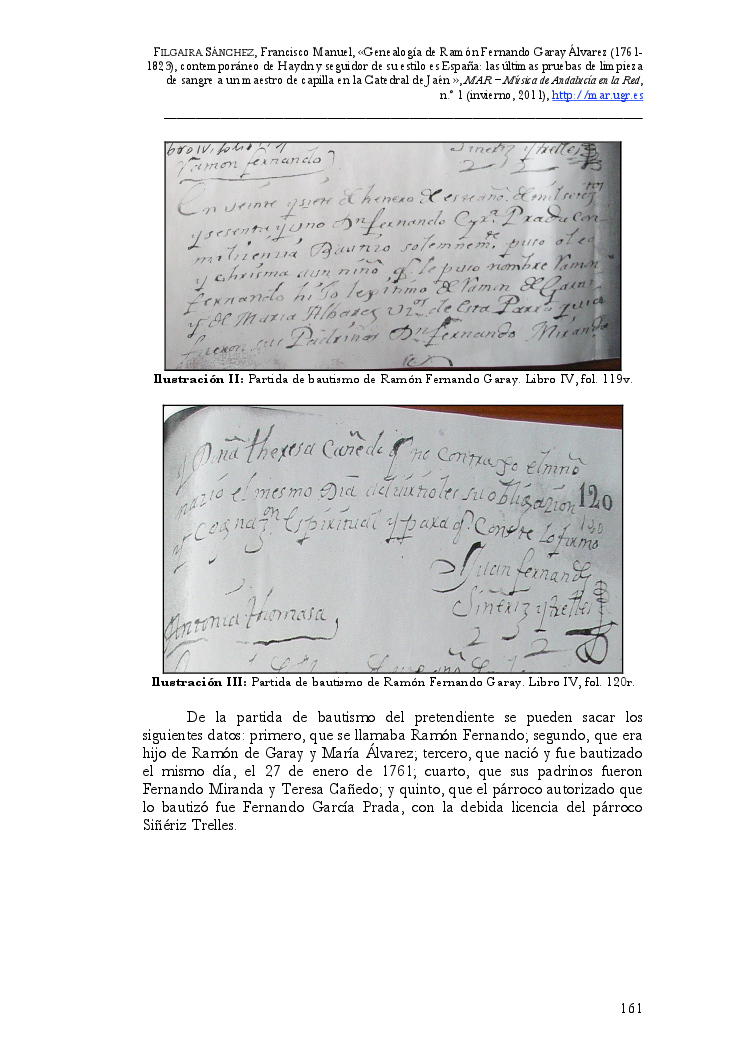 FILGAIRA SÁNCHEZ, Francisco Manuel, «Genealogía de Ramón Fernando Garay Álvarez (1761-
1823), contemporáneo de Haydn y seguidor de su estilo es España: las últimas pruebas de limpieza
de sangre a un maestro de capilla en la Catedral de Jaén», MAR – Música de Andalucía en la Red,
n.º 1 (invierno, 2011), http://mar.ugr.es
Siñeriz y trelles
Ramon fernando
En veinte y siete de henero de este año de mil setez.tos
y sesenta y uno Dn fernando Prada con
mi licencia Bautizo solemnem.te puso oleo
y chrisma a un niño q. le puso nombre Ramon
fernando hijo legitimo de Ramon de Garai
y de Maria Albarez de esta Parro quia
fueron sus Padrinos Dn fernando Miranda
Ilustración II: Partida de bautismo de Ramón Fernando Garay. Libro IV, fol. 119v.
y Dña theresa Cañedo q no contrajo el niño
nazió el mesmo Dia su obligazion 120
y Espiritual y para q. Conste lo firmo
Juan fernand
Siñeriz y trelles
Antonia thomasa
2 2
Ilustración III: Partida de bautismo de Ramón Fernando Garay. Libro IV, fol. 120r.
De la partida de bautismo del pretendiente se pueden sacar los
siguientes datos: primero, que se llamaba Ramón Fernando; segundo, que era
hijo de Ramón de Garay y María Álvarez; tercero, que nació y fue bautizado
el mismo día, el 27 de enero de 1761; cuarto, que sus padrinos fueron
Fernando Miranda y Teresa Cañedo; y quinto, que el párroco autorizado que
lo bautizó fue Fernando García Prada, con la debida licencia del párroco
Siñériz Trelles.
161